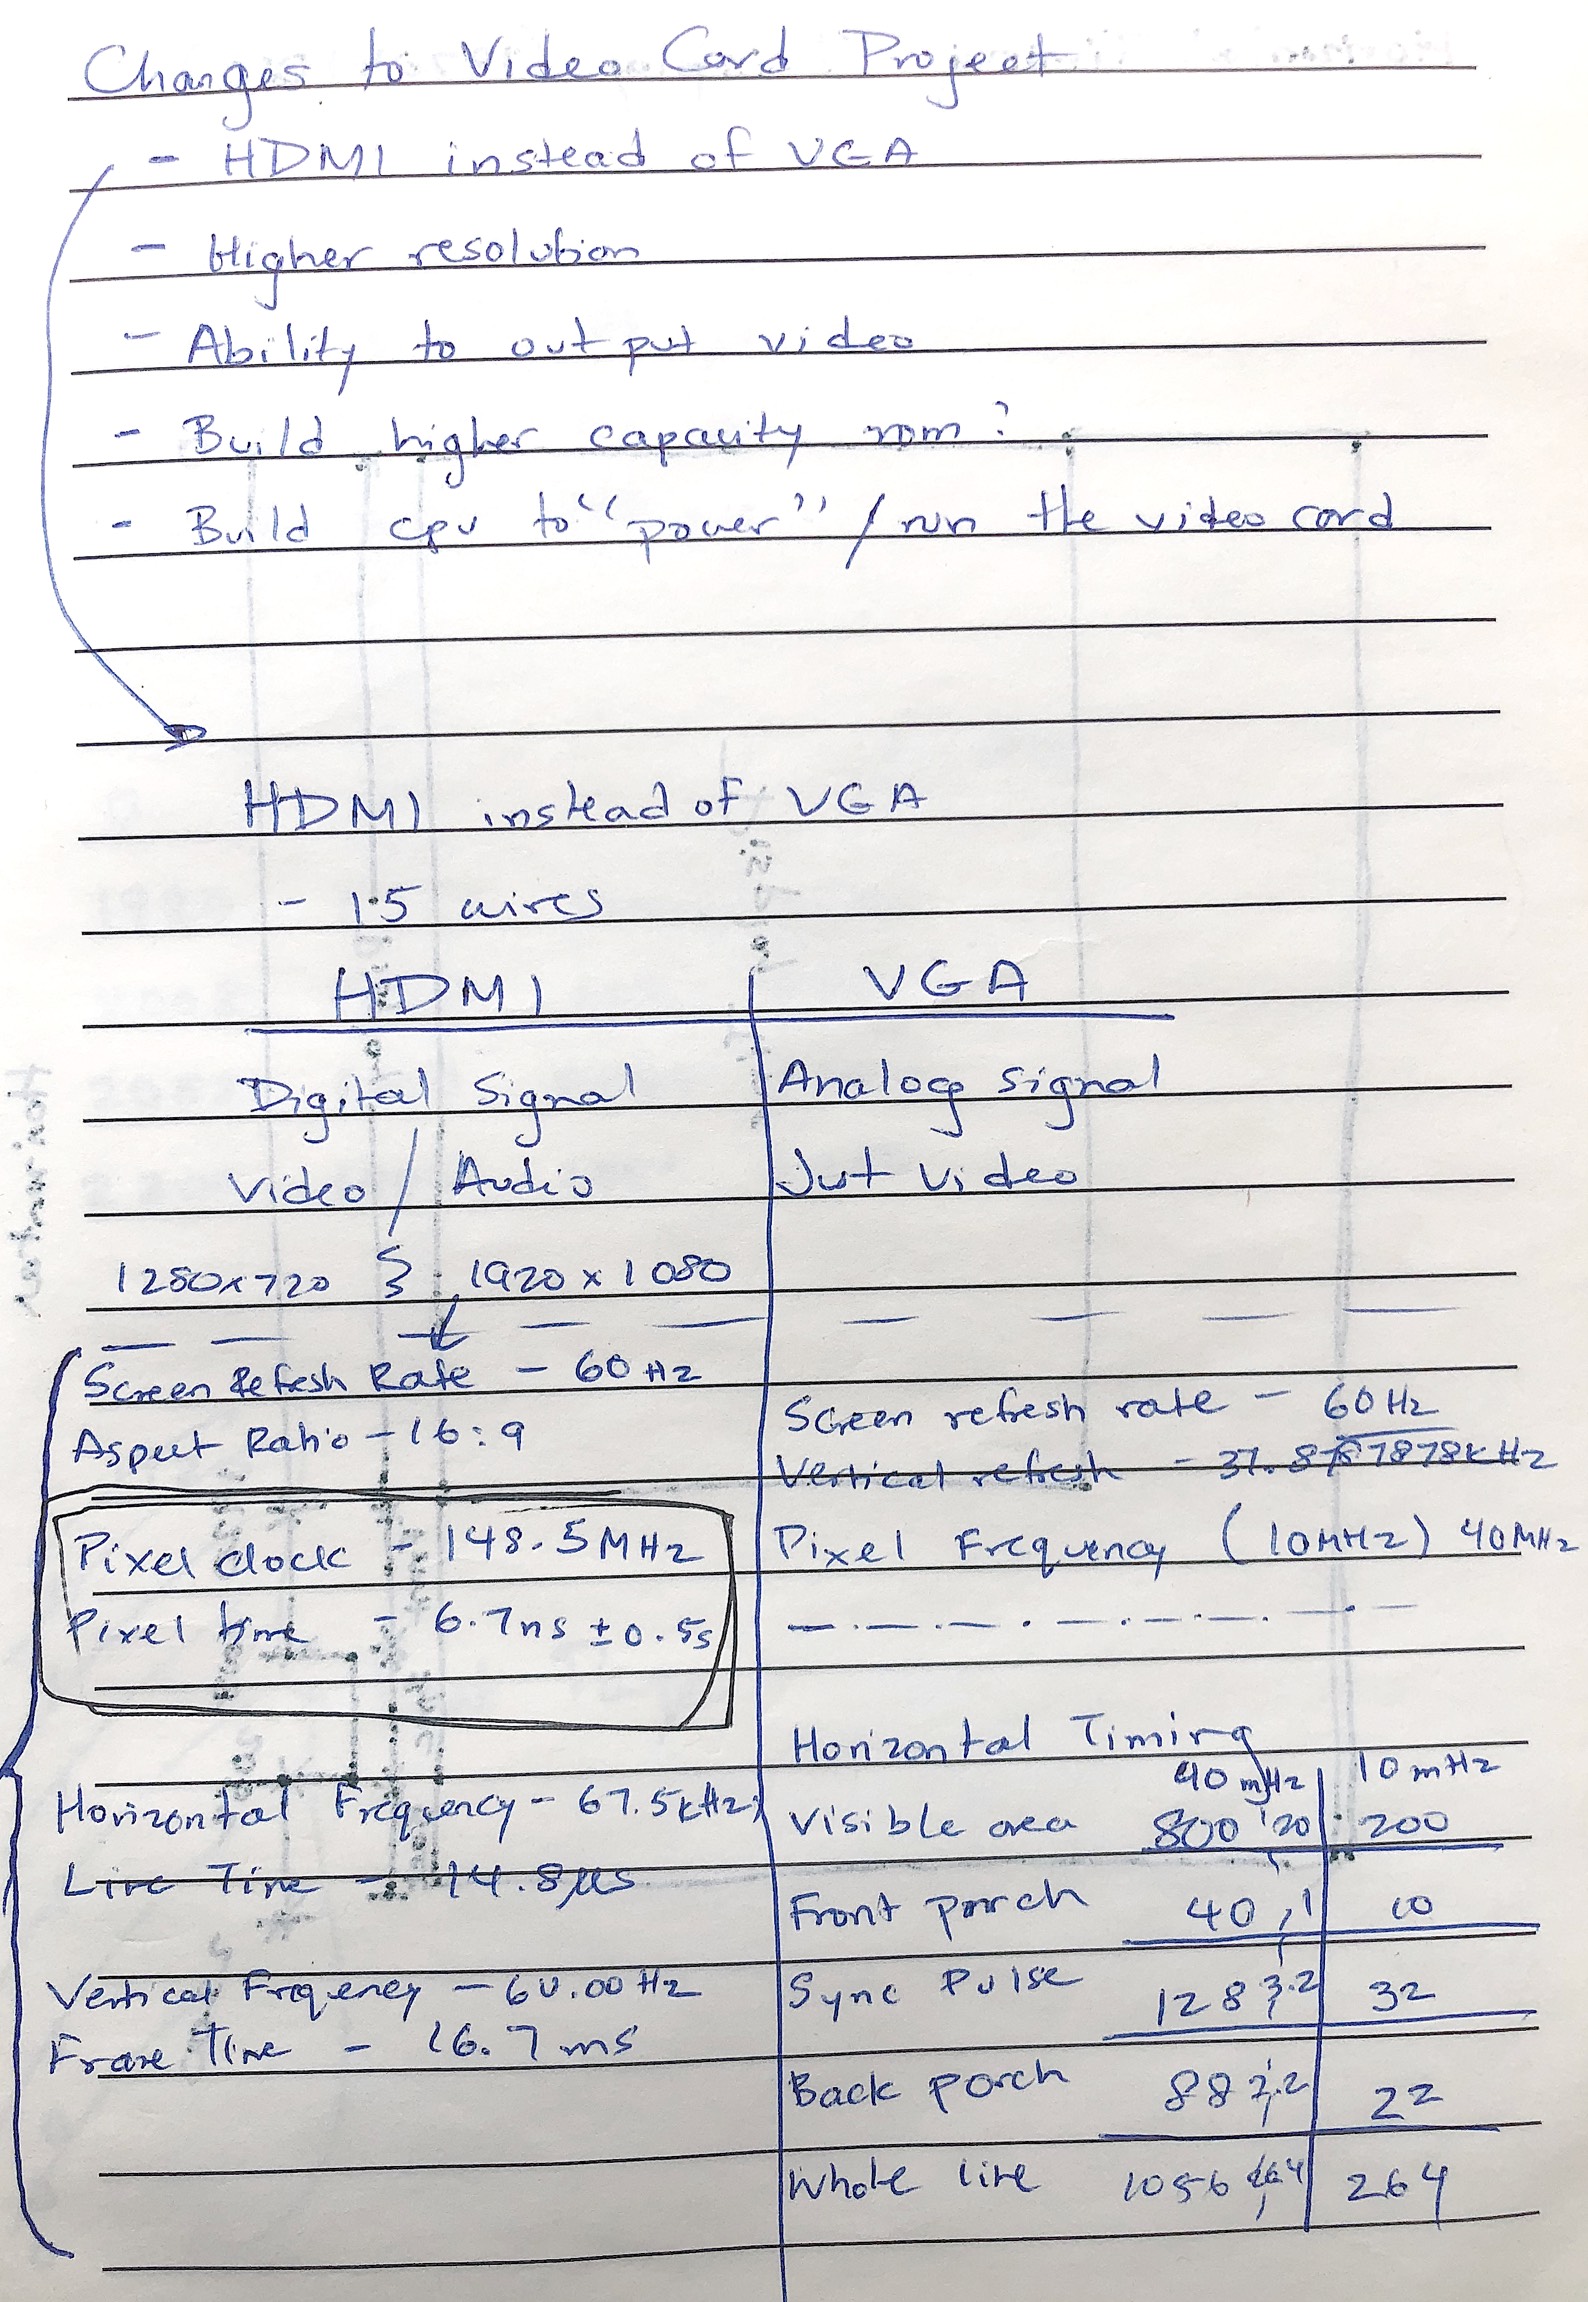 Changes to Video Card Project
- HDMI instead of VGA
- Higher resolution
- Ability to output video
- Build higher capacity rom?
- Build cpu to "power" / run the video card
HDMI instead of VGA
- 15 wires
HDMI
Digital Signal
Video / Audio
1280x720 } 1920x1080
Screen Refesh Rate - 60Hz
Aspect Ratio - 16:9
Pixel clock - 148.5MHz
Pixel time - 6.7ns ±0.5s
Horizontal Frequency - 67.5kHz
Line Time - 14.8µs
Vertical Freqency - 60.00Hz
Frame Time - 16.7ms
VGA
Analog Signal
Just Video
Screen refresh rate - 60Hz
Vertical refresh - 37.8787878kHz
Pixel Frequency (10MHz) 40MHz
Horizontal Timing
40mHz | 10mHz
Visible area 800 | 20 | 200
Front porch 40 | 1 | 10
Sync Pulse 128 | 3.2 | 32
Back porch 88 | 2.2 | 22
Whole line 1056 | 26.4 | 264